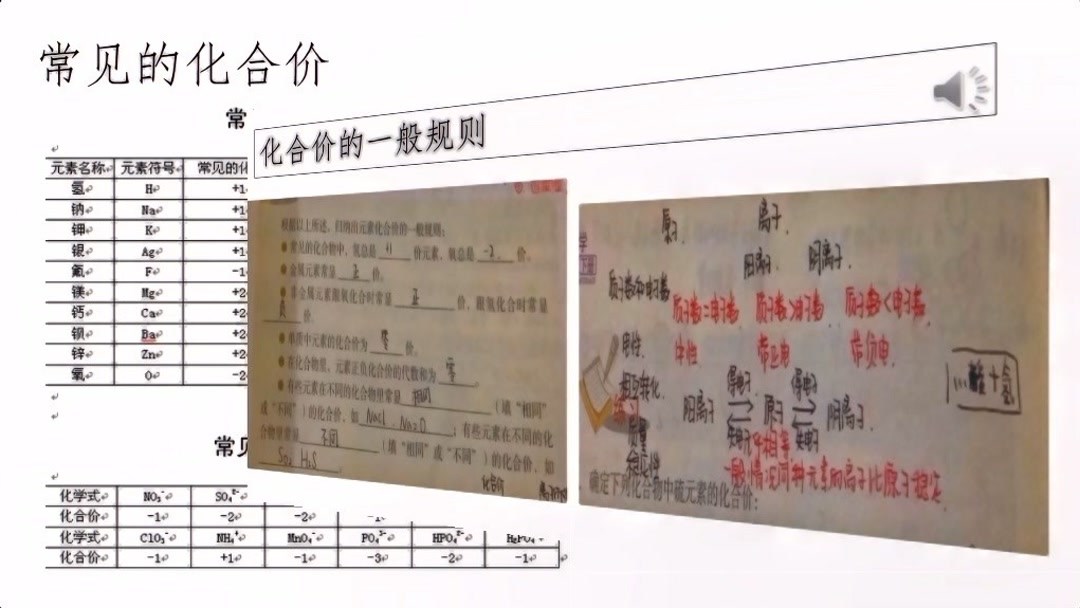 常见的化合价
常
化合价的一般规则
元素名称 元素符号 常见的化
氢 H +1
钠 Na +1
钾 K +1
银 Ag +1
氟 F -1
镁 Mg +2
钙 Ca +2
钡 Ba +2
锌 Zn +2
氧 O -2
常见
化学式 NO₃⁻ SO₄²⁻
化合价 -1 -2 -2
化学式 ClO₃⁻ NH₄⁺ MnO₄⁻ PO₄³⁻ HPO₄²⁻ H₂PO₄⁻
化合价 -1 +1 -1 -3 -2 -1
根据以上所述,归纳出元素化合价的一般规则:
常见的化合物中,氢总是 +1 价元素,氧总是 -2 价。
金属元素常显 正 价。
非金属元素跟氧化合时常显 正 价,跟氢化合时常显
负 价
单质中元素的化合价为 零 价。
在化合物里,元素正负化合价的代数和为 零
有些元素在不同的化合物里常显 相同 (填“相同”
或“不同”)的化合价,如 NaCl、Na₂O ;有些元素在不同的化
合物里常显 不同 (填“相同”或“不同”)的化合价,如
SO₂ H₂S
化合价
学
下册
原子 离子
阳离子 阴离子
质子数和电子数 质子数=电子数 质子数>电子数 质子数<电子数
电性 中性 带正电 带负电
相互转化 阳离子 得电子 失电子 原子 得电子 失电子 阴离子
质量 相等
稳定性 一般情况同种元素的离子比原子稳定
确定下列化合物中硫元素的化合价: